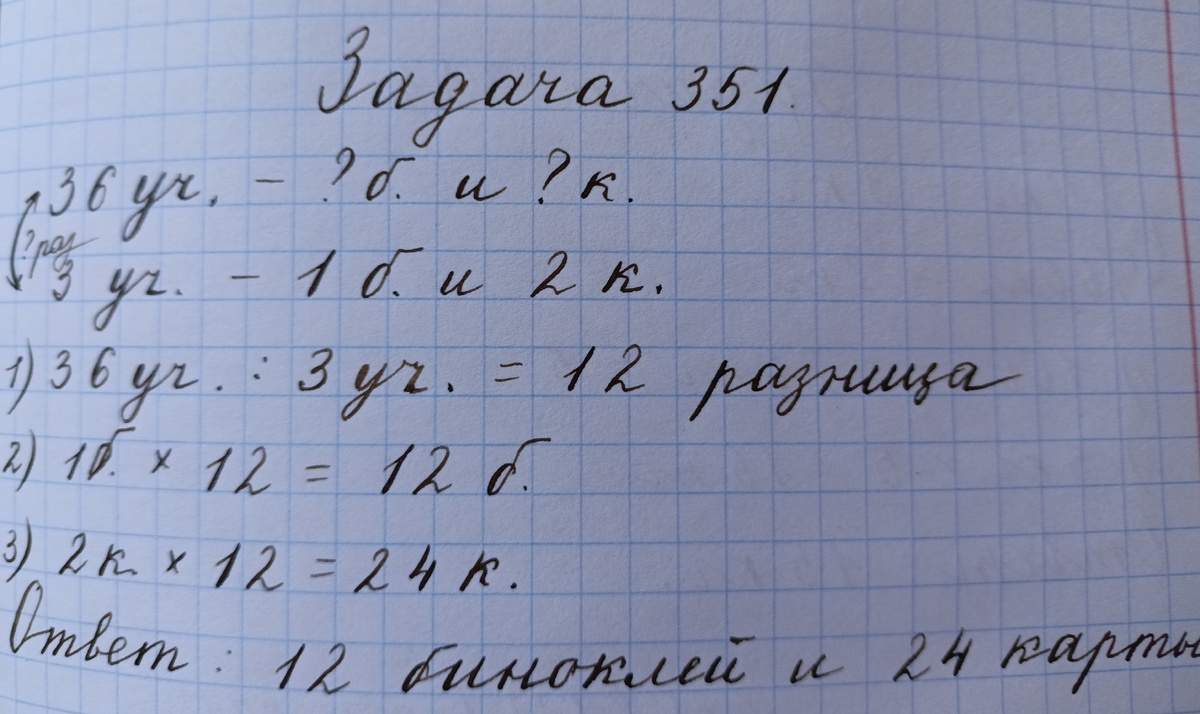 Задача 351.
36 уч. – ? б. и ? к.
? раз
3 уч. – 1 б. и 2 к.
1) 36 уч. : 3 уч. = 12 разница
2) 1б. × 12 = 12 б.
3) 2к. × 12 = 24 к.
Ответ : 12 биноклей и 24 карты